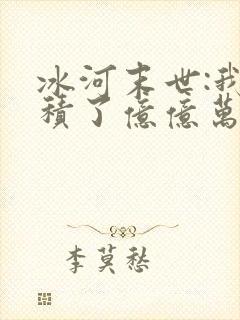 冰河末世:我
積了億億萬
李莫愁